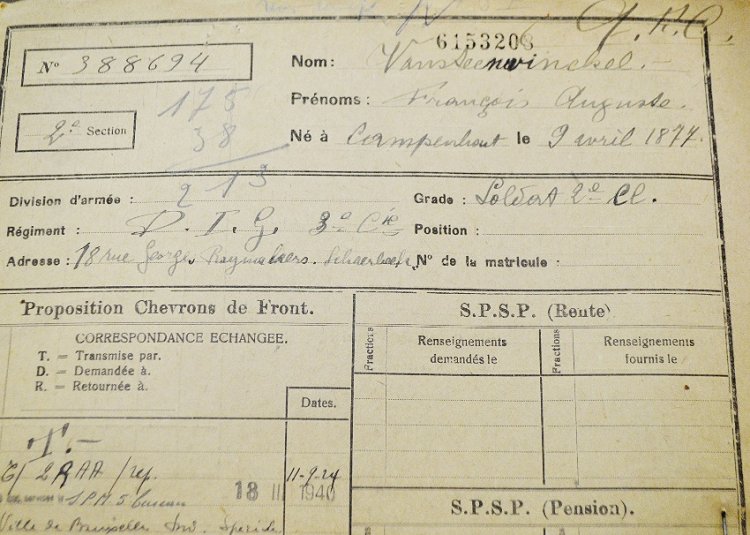 6153208
A.P.C.
Nº 388694
Nom : Vansteenwinckel.-
175
Prénoms : François Auguste.
38
2e Section
Né à Campenhout le 9 avril 1877.
213
Division d'armée :
Grade : Soldat 2e Cl.
Régiment : D. T. G. 3e Cie
Position :
Adresse : 18 rue Georges Raymaekers. Schaerbeek
Nº de la matricule :
Proposition Chevrons de Front.
S.P.S.P. (Route)
CORRESPONDANCE ECHANGEE.
T. — Transmise par.
D. — Demandée à.
R. — Retournée à.
Fractions
Renseignements demandés le
Fractions
Renseignements fournis le
Dates.
T.-
2 R AA / rep.
11-9-24
18 III 1940
S.P.M 5 bureau
S.P.S.P. (Pension).
Ville de Bruxelles